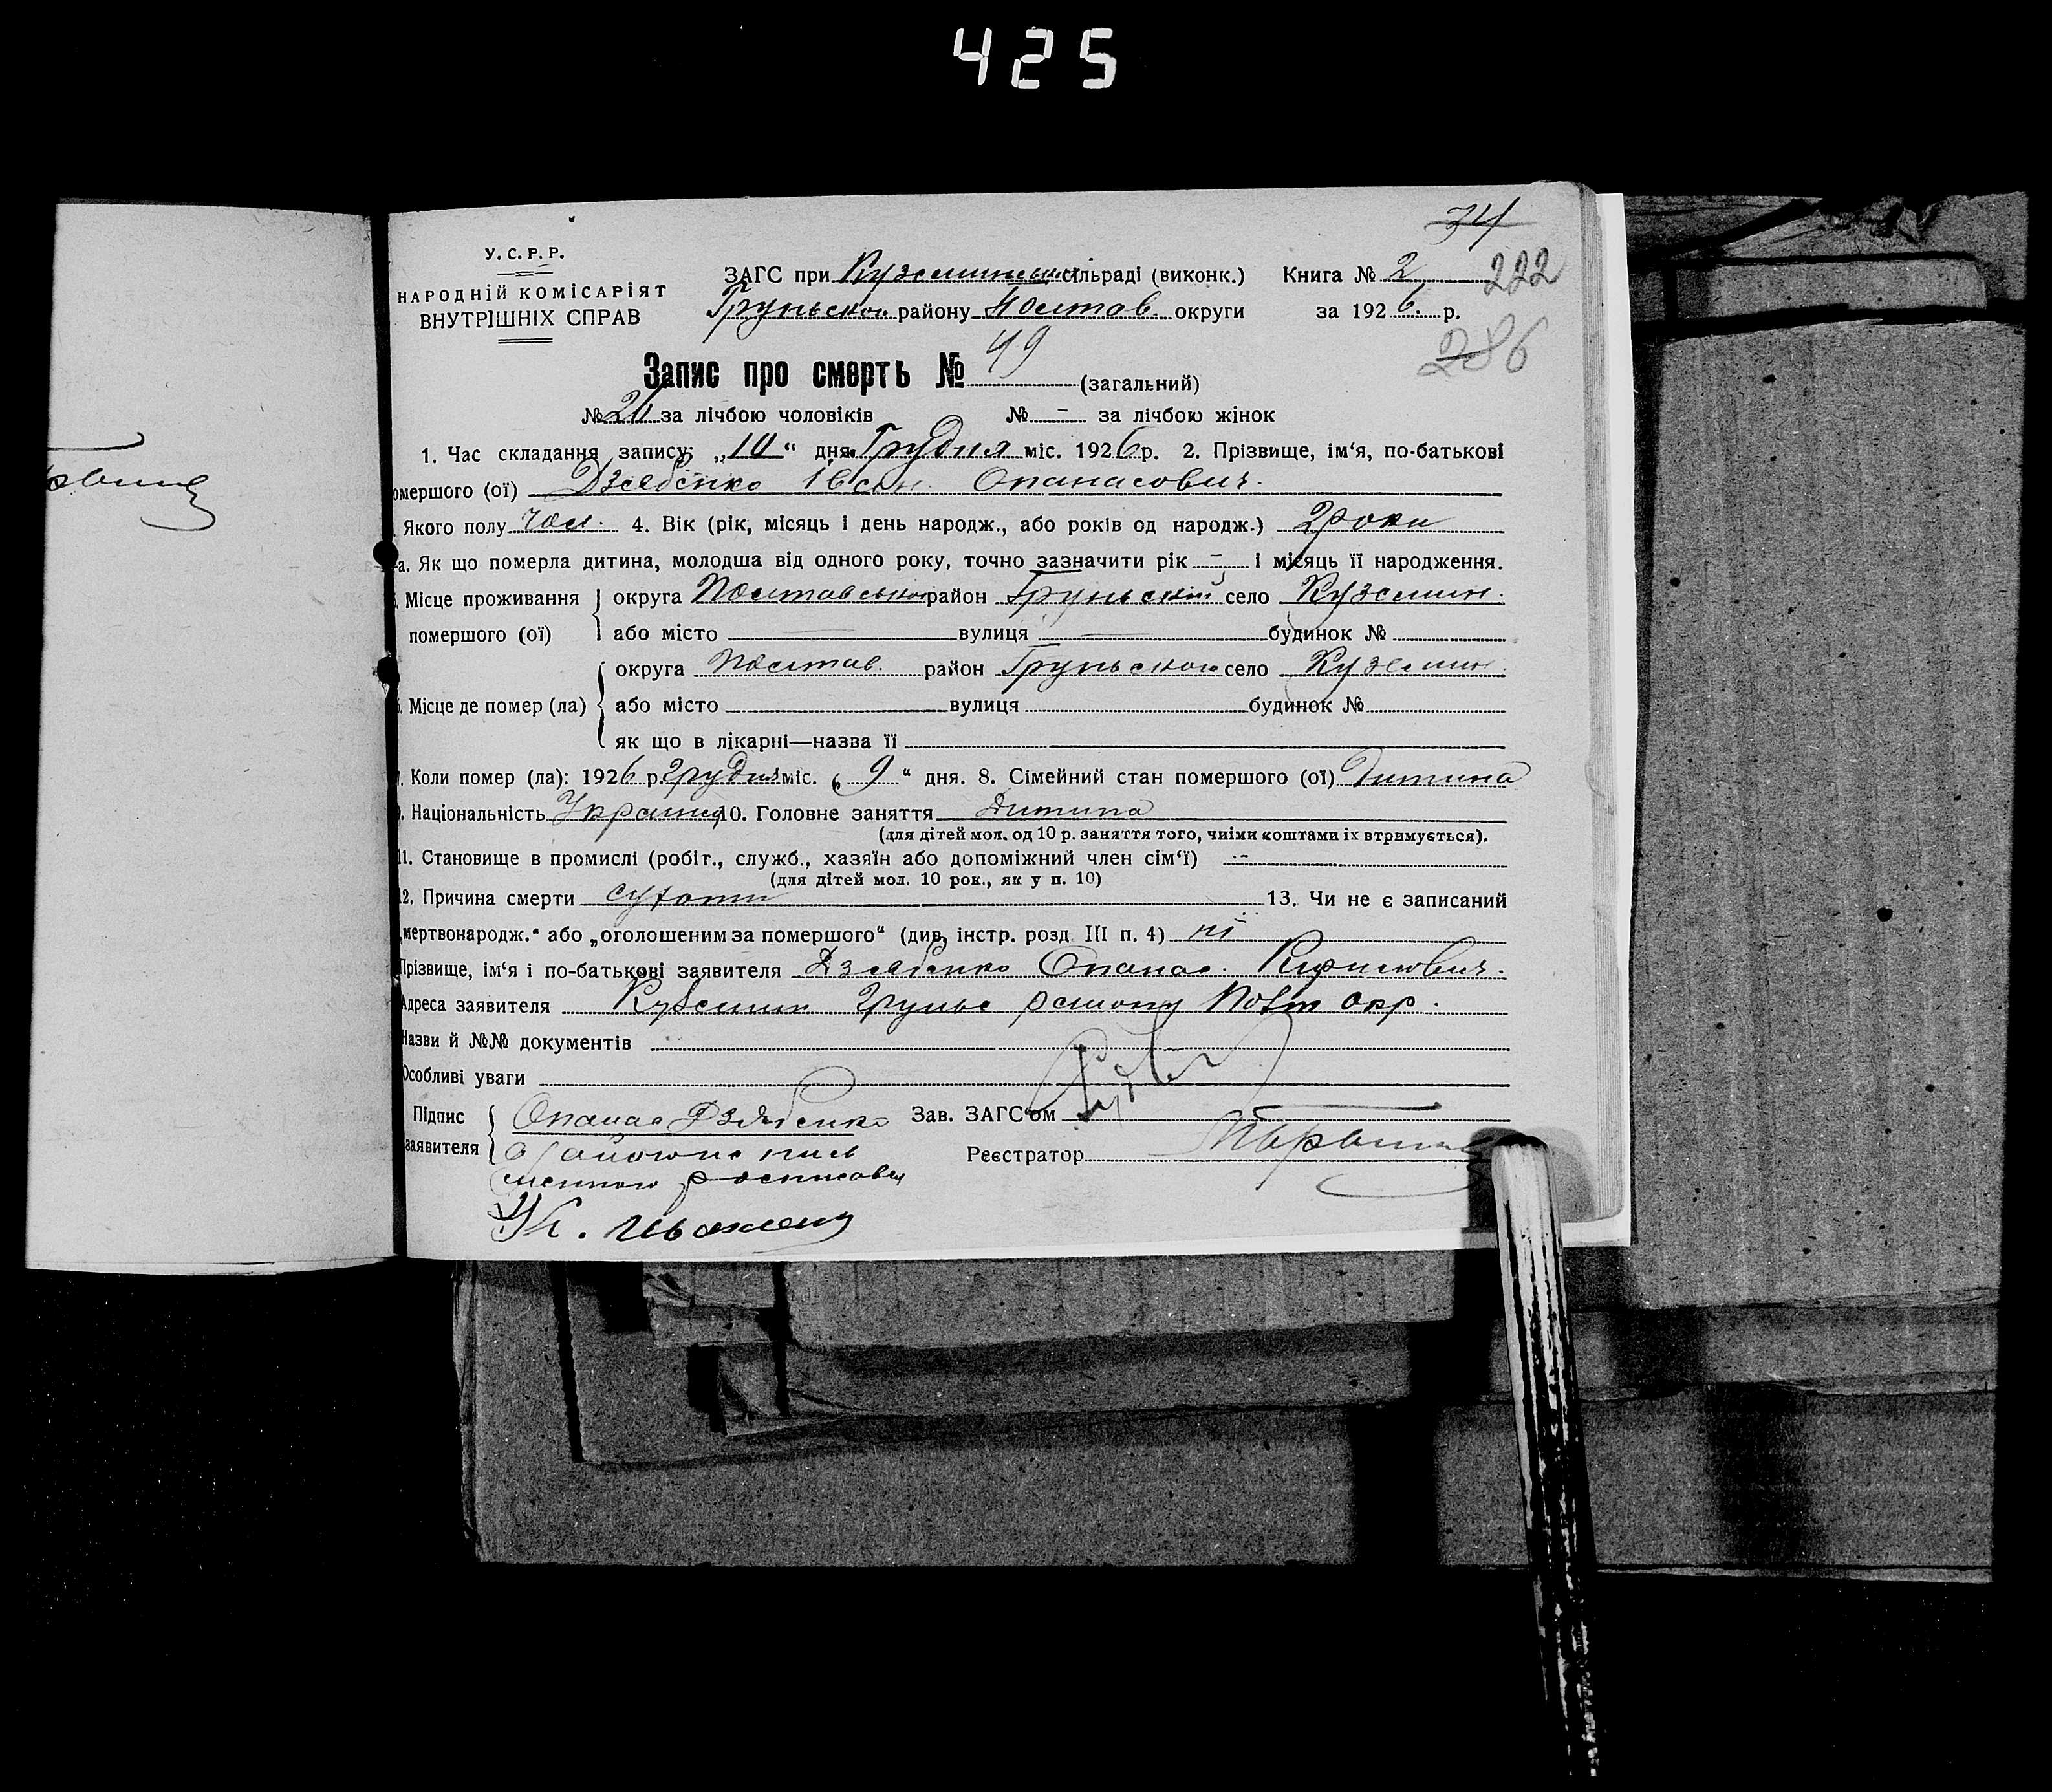 425
34
У.С.Р.Р.
НАРОДНІЙ КОМІСАРІЯТ
ВНУТРІШНІХ СПРАВ
ЗАГС при Куземинській сільраді (виконк.) Книга № 2 222
Грунськом району Полтав. округи за 1926. р.
286
Запис про смерть № 49 (загальний)
№ 26 за лічбою чоловіків № - за лічбою жінок
1. Час складання запису: „10“ дня Грудня міс. 1926 р. 2. Прізвище, ім‘я, по-батькові
омершого (ої) Дзябенко Опанасович.
Якого полу чол. 4. Вік (рік, місяць і день народж., або років од народж.) 2 роки
а. Як що померла дитина, молодша від одного року, точно зазначити рік - і місяць її народження.
Місце проживання округа Полтавської район Грунський село Куземин.
помершого (ої) або місто вулиця будинок №
округа Полтав. район Грунського село Куземин.
Місце де помер (ла) або місто вулиця будинок №
як що в лікарні—назва її
Коли помер (ла): 1926 р. грудня міс. „9“ дня. 8. Сімейний стан помершого (ої) Дитина
Національність Україн. 10. Головне заняття Дитина
(для дітей мол. од 10 р. заняття того, чиїми коштами їх втримується).
11. Становище в промислі (робіт., служб., хазяїн або допоміжний член сім‘ї) -
(для дітей мол. 10 рок., як у п. 10)
12. Причина смерти сухоти 13. Чи не є записаний
„мертвонародж.“ або „оголошеним за помершого“ (див. інстр. розд. III п. 4) ні
Прізвище, ім‘я і по-батькові заявителя Дзябенко Опанас. Кирилович.
Адреса заявителя Куземин Грунс району Полт окр.
Назви й №№ документів
Особливі уваги
Підпис Опанас Дзябенко Зав. ЗАГС‘ом
заявителя Реєстратор